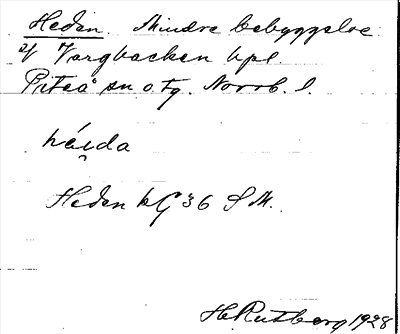 Heden. Mindre bebyggelse
af Vargbacken hpl.
Piteå sn o. tg. Norrb. l.
héi̯da
Heden kG 36 S M.
H Rutberg 1928